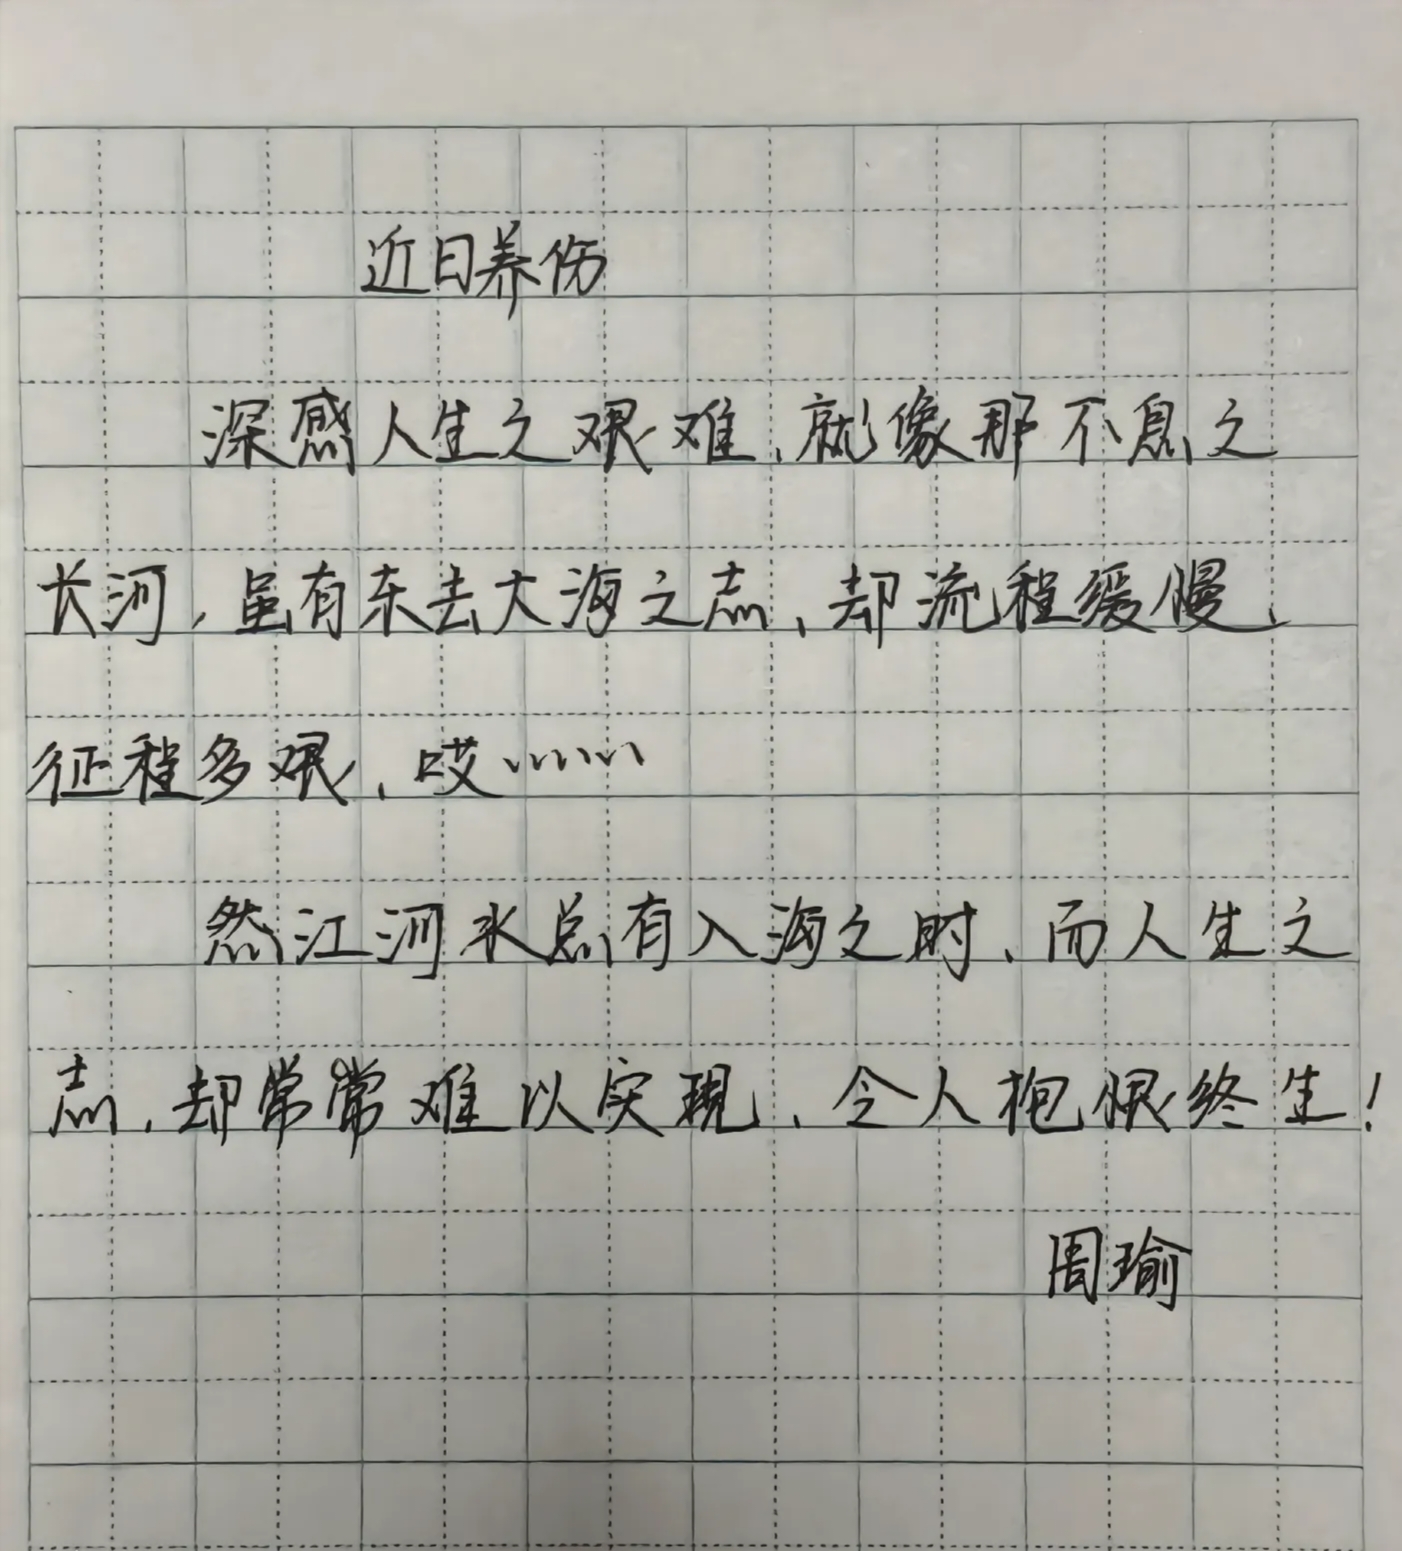 近日养伤
深感人生之艰难，就像那不息之
长河，虽有东去大海之志，却流程缓慢，
征程多艰，哎……
然江河水总有入海之时，而人生之
志，却常常难以实现，令人抱恨终生！
周瑜